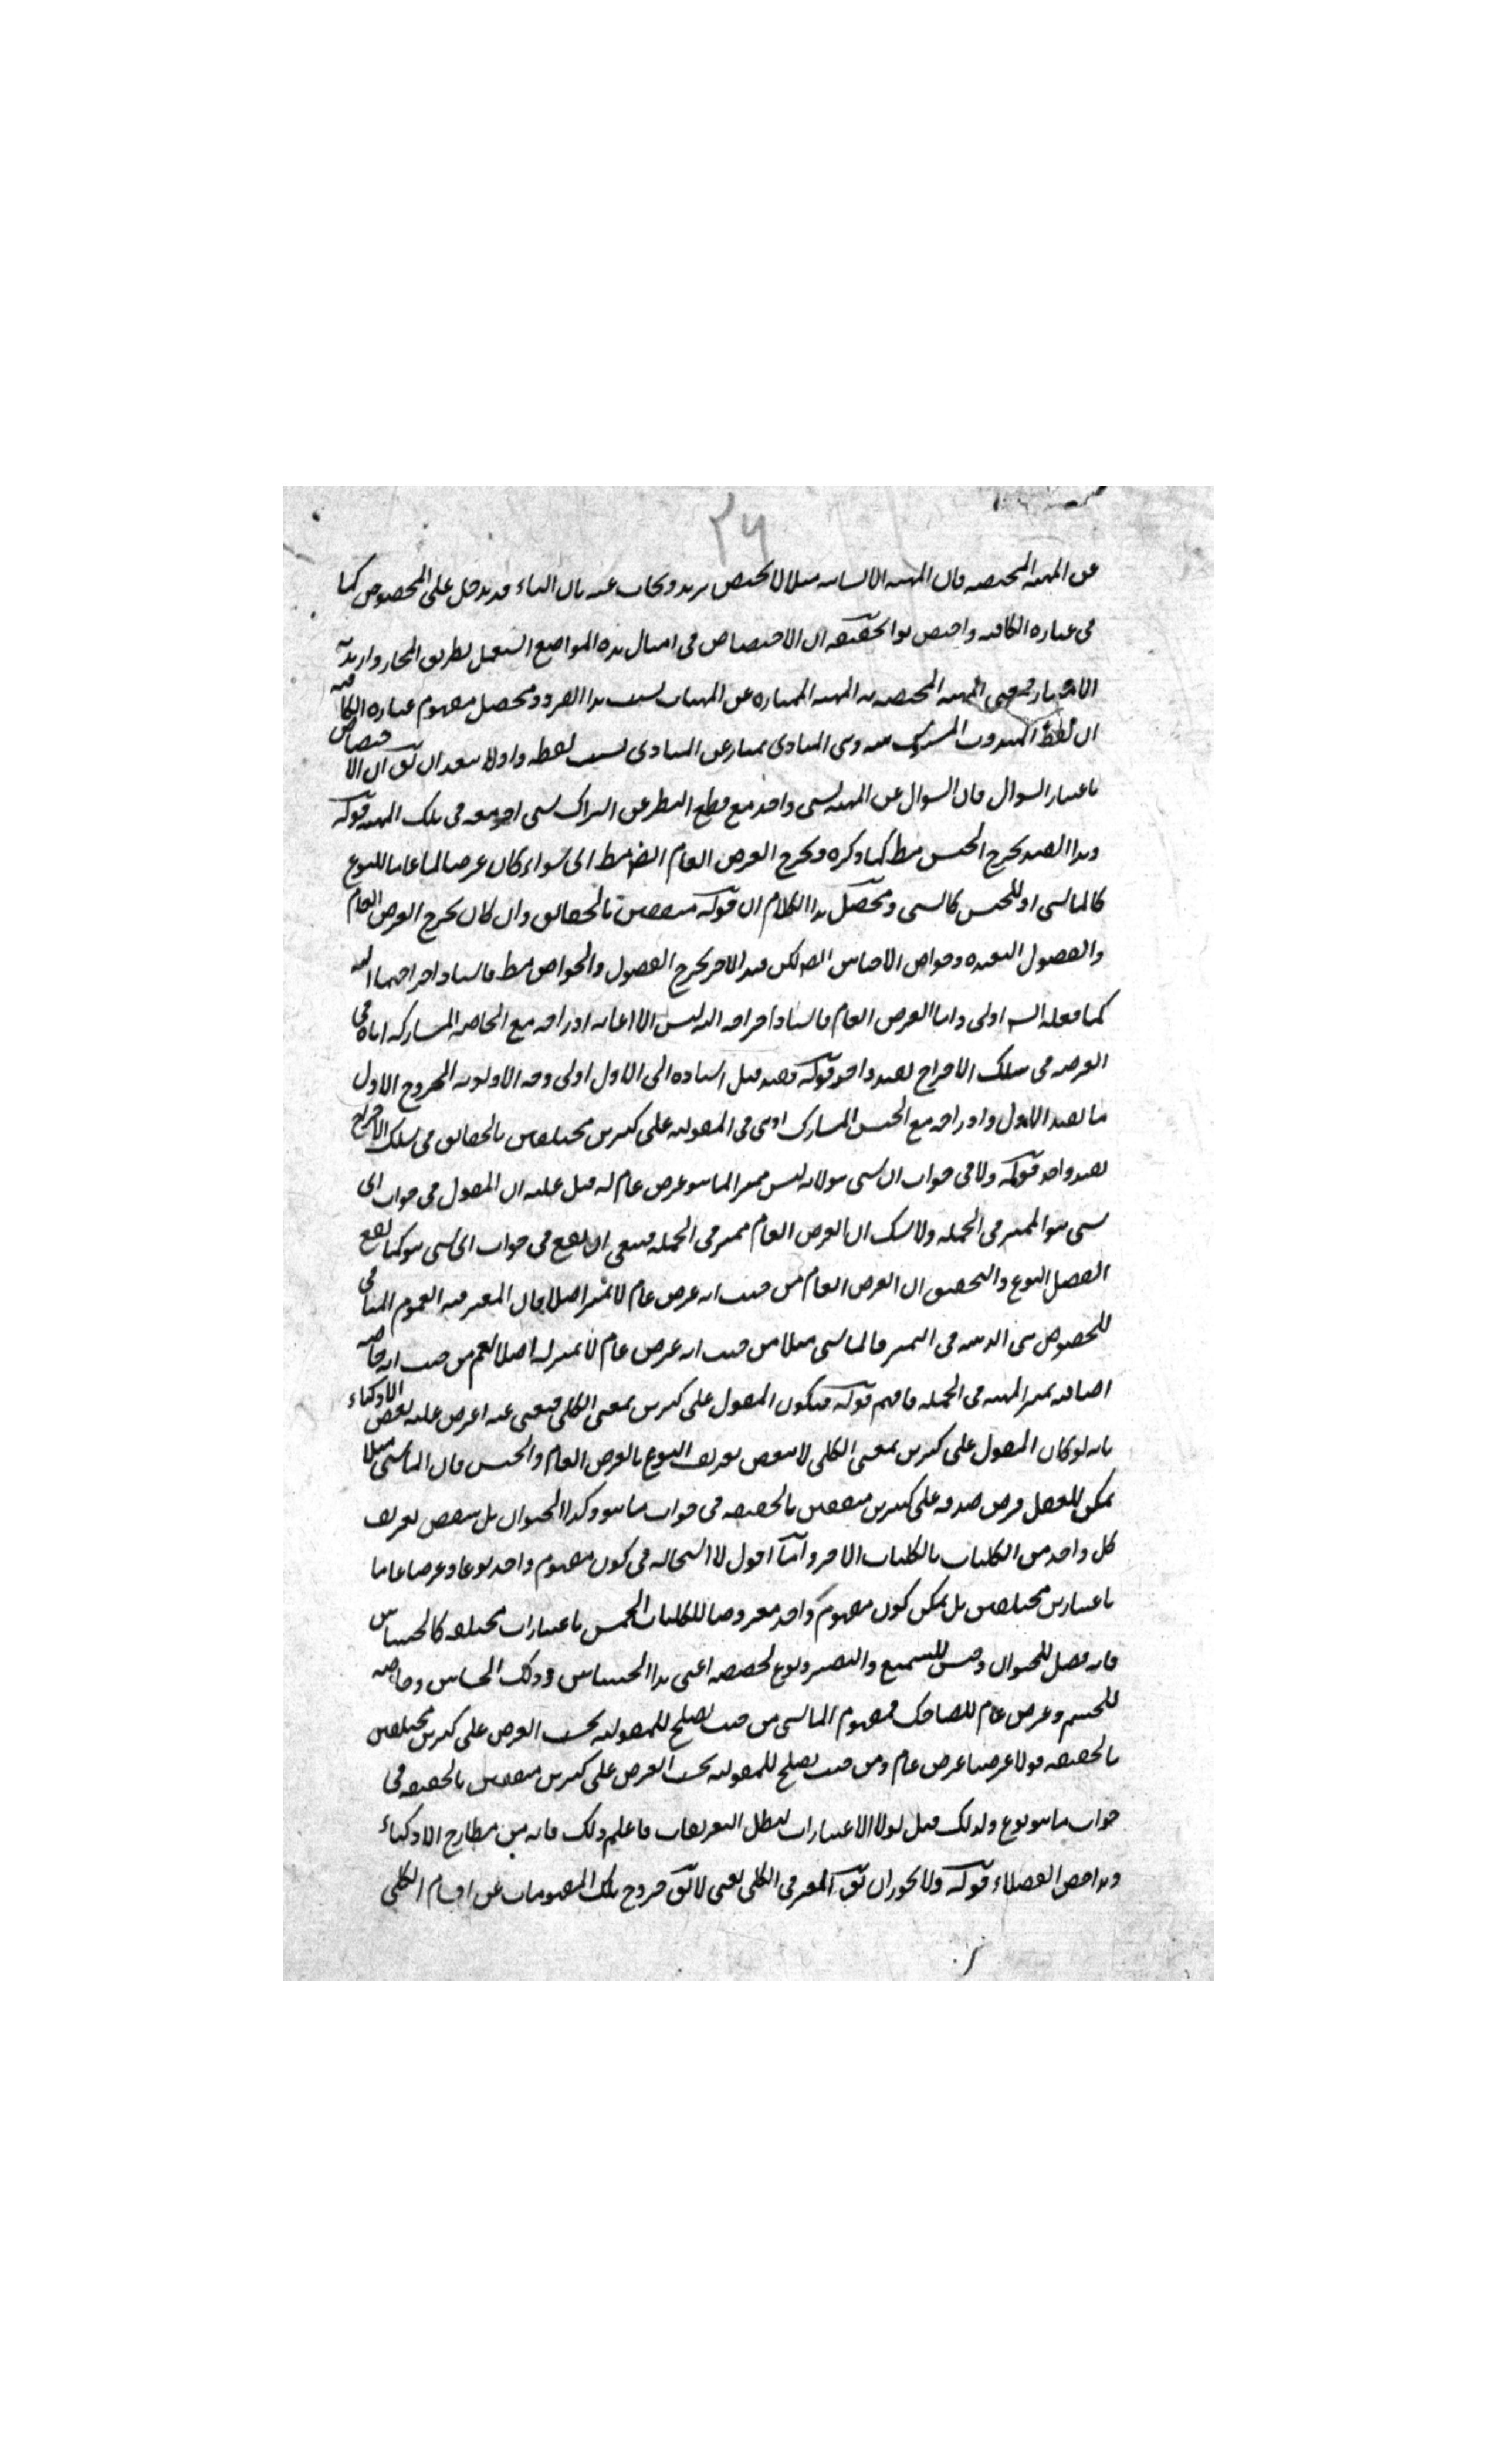 ٢٦
عن المهية المختصة فان المهية الانسانية مثلا لا يختص بزيد ويجاب عنه بان الباء قد يدخل على المخصوص كما
فى عبارة الكافية واختص بوا الحقيقة ان الاختصاص فى امثال هذه المواضع استعمل بطريق المجاز واريد به
الامتياز فمعنى المهية المختصة به المهية الممتازة عن المهيات بسبب هذا الفرد ومحصل مفهوم عبارة الكافية
ان لفظ المندوب المشترك بينه وبين المنادى يمتاز عن المنادى بسبب لفظة وا ولا يبعد ان يق ان الاختصاص
باعتبار السوال فان السوال عن المهية لشى واحد مع قطع النظر عن اشتراك شى اخر معه فى تلك المهية قوله
وهذا القيد يخرج الجنس فقط كما ذكره ويخرج العرض العام ايضا فقط اى سواء كان عرضا عاما للنوع
كالماشى او للجنس كالشى ومحصل هذا الكلام ان قوله متفقين بالحقائق وان كان يخرج العرض العام
والفصول البعيدة وخواص الاجناس ايضا لكن قيد الاخر يخرج الفصول والخواص فقط فاسناد اخراجهما اليه
كما فعله السيد اولى واما العرض العام فاسناد اخراجه اليه ليس الا لغاية ادراجه مع الخاصة المشاركة اياه فى
العرضية فى سلك الاخراج بقيد واحد قوله وقد قيل اسناده الى الاول اولى وجه الاولوية الخروج الاول
بالقيد الاول وادراجه مع الجنس المشارك اياه فى المقولية على كثيرين مختلفين بالحقائق فى سلك الاخراج
بقيد واحد قوله ولا فى جواب اى شى هو لانه ليس مميزا لما هو عرض عام له قيل عليه ان المقول فى جواب اى
شى هو المميز فى الجملة ولا شك ان العرض العام مميز فى الجملة فينبغى ان يقع فى جواب اى شى هو كما يقع
الفصل البعيد والتحقيق ان العرض العام من حيث انه عرض عام لا يميز اصلا فان المعتبر فيه العموم المنافى
للخصوص فى المميز فالماشى مثلا من حيث انه عرض عام لا تميز له اصلا نعم من حيث انه خاصة
اضافية يميز المهية فى الجملة فافهم قوله فيكون المقول على كثيرين بمعنى الكلى فيغنى عنه اعترض عليه بعض الاذكياء
بانه لو كان المقول على كثيرين بمعنى الكلى لانتقض تعريف النوع بالعرض العام والجنس فان الماشى مثلا
يمكن للعقل فرض صدقه على كثيرين متفقين بالحقيقة فى جواب ما هو وكذا الحيوان بل ينتقض تعريف
كل واحد من الكليات بالكليات الاخر وانا اقول لا استحالة فى كون مفهوم واحد نوعا وعرضا عاما
باعتبارين مختلفين بل يمكن كون مفهوم واحد معروضا للكليات الخمس باعتبارات مختلفة كالحساس
فانه فصل للحيوان وجنس للسميع والبصير ونوع لحصصه اعنى هذا الحساس وذلك الحساس وخاصة
للجسم وعرض عام للضاحك فمفهوم الماشى من حيث يصلح للمقولية بحسب الفرض على كثيرين مختلفين
بالحقيقة قولا عرضيا عرض عام ومن حيث يصلح للمقولية بحسب الفرض على كثيرين متفقين بالحقيقة فى
جواب ما هو نوع ولذلك قيل لولا الاعتبارات لبطل التعريفات فاعلم ذلك فانه من مطارح الاذكياء
وهذا بعض الفضلاء قوله ولا يجوز ان يق المعتبر فى الكلى يعنى لا يق خروج تلك المفهومات عن اقسام الكلى